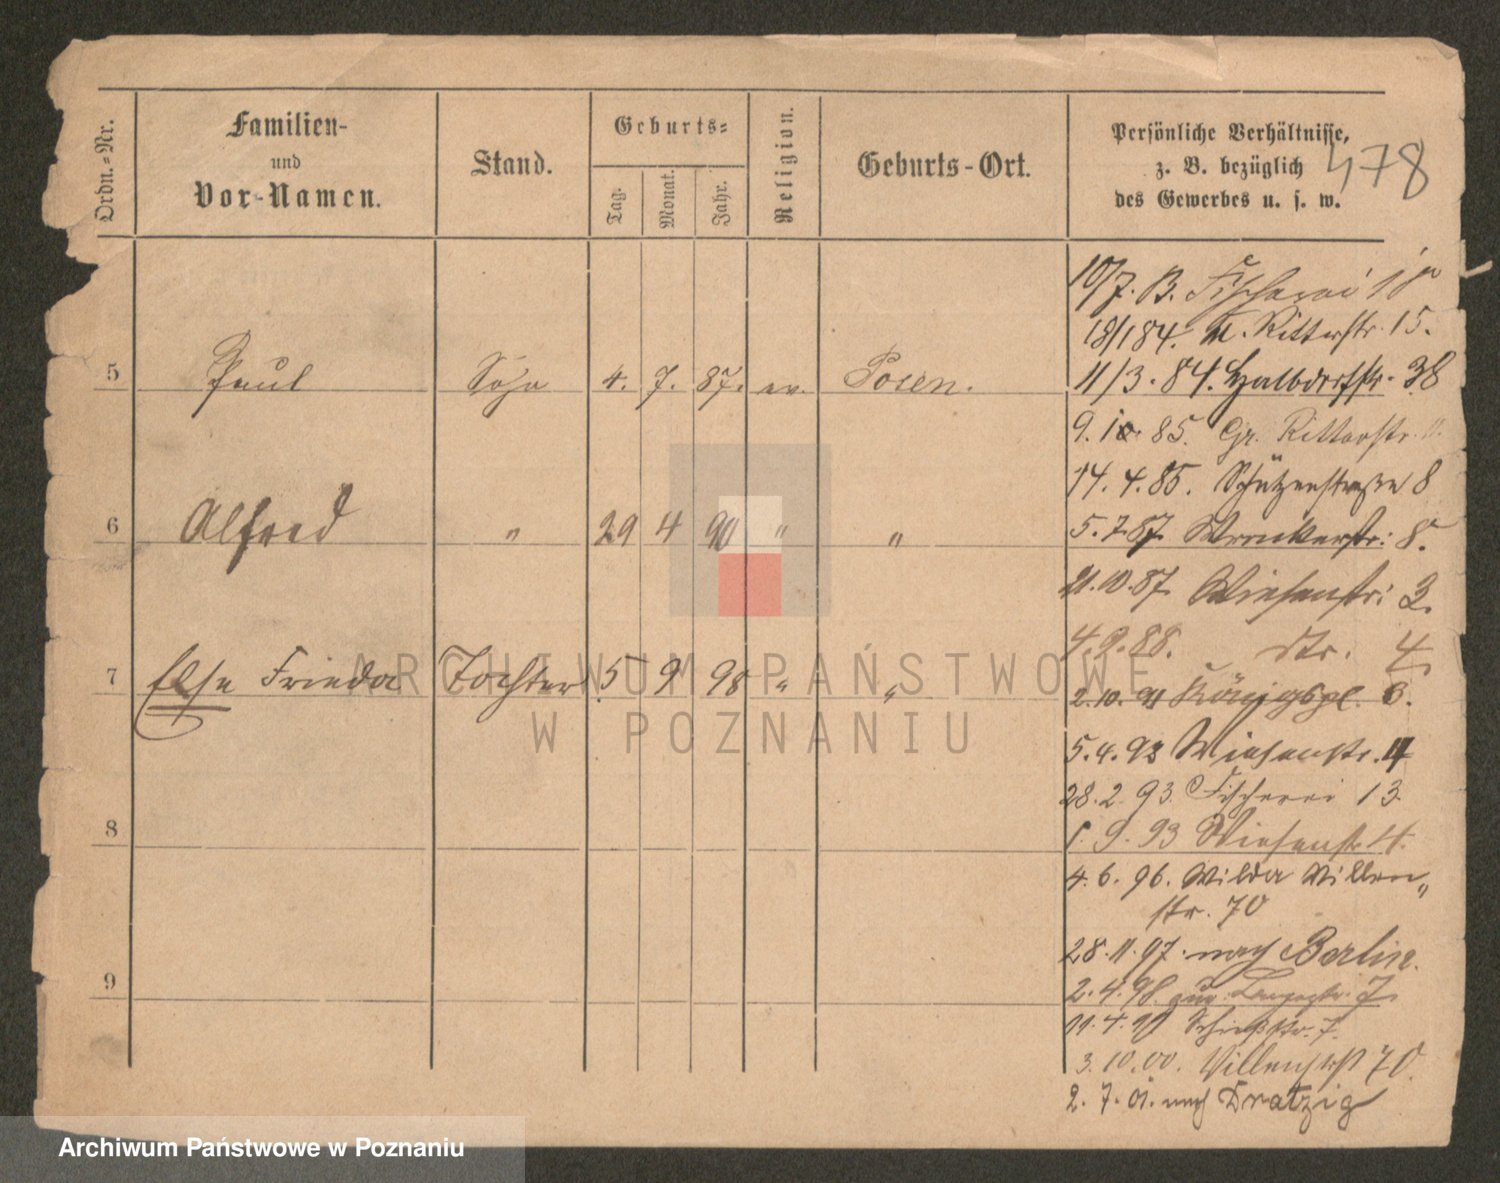 Ordn.-Nr.
Familien-
und
Vor-Namen.
Stand.
Geburts-
Tag.
Monat.
Jahr.
Religion.
Geburts-Ort.
Persönliche Verhältnisse,
z. B. bezüglich
des Gewerbes u. s. w.
478
10/7. B. Fischerei
18/1 84. Ritterstr. 15.
5 Paul 4. 7. 87. ev. Posen.
11/3. 84. Halbdorfstr. 38
85. Gr. Ritterstr.
14. 4. 85. Schützenstraße 8
6 Alfred " 29 4 90 " "
5. 7. 87. Wronkerstr: 8.
21. 10. 87. Wiesenstr: 3.
4. 9. 88. dto. 4
7 Else Frieda Tochter 5 9 98 " "
2. 10. 91 Königspl. 3.
5. 4. 92 Wiesenstr. 4
28. 2. 93. Fischerei 13
8
1. 9. 93 Wiesenstr. 4.
4. 6. 96. Wilda Villen„
str. 70
28. 11. 97. nach Berlin.
9
2. 4. 98. 7.
11. 4. Schießstr. 7.
3. 10. 00. Villenstr 70.
2. 7. 01. nach Dratzig
ARCHIWUM PAŃSTWOWE
W POZNANIU
Archiwum Państwowe w Poznaniu